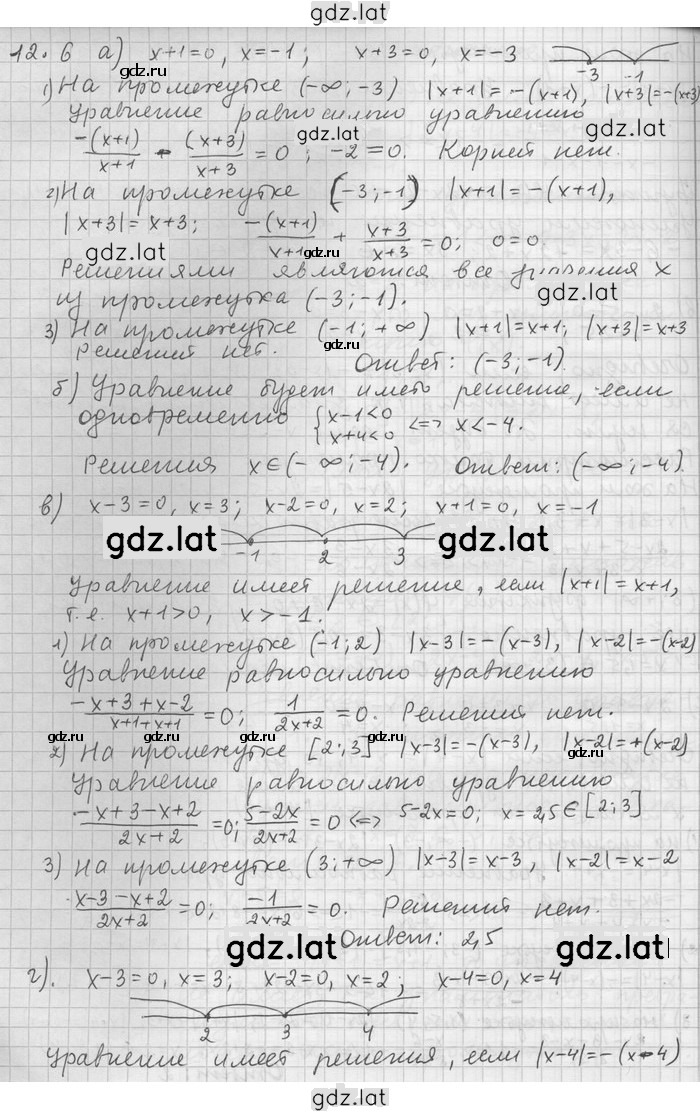 gdz.lat
12.6 а) x+1=0, x=-1; x+3=0, x=-3
-3 -1
gdz.lat
1) На промежутке (-∞; -3) |x+1|=-(x+1), |x+3|=-(x+3)
gdz.lat
Уравнение равносильно уравнению
gdz.lat
-(x+1)/x+1 - (x+3)/x+3 = 0; -2=0. Корней нет.
gdz.lat
2) На промежутке (-3; -1) |x+1|=-(x+1),
|x+3|=x+3; -(x+1)/x+1 + x+3/x+3 = 0; 0=0.
gdz.lat
Решениями являются все значения x
gdz.lat
из промежутка (-3; -1).
3) На промежутке (-1; +∞) |x+1|=x+1; |x+3|=x+3
gdz.lat
Решений нет. Ответ: (-3; -1).
gdz.lat
б) Уравнение будет иметь решение, если
одновременно {x-1<0 x+4<0 <=> x<-4.
gdz.lat
Решения x∈(-∞; -4). Ответ: (-∞; -4).
gdz.lat
в) x-3=0, x=3; x-2=0, x=2; x+1=0, x=-1
gdz.lat gdz.lat gdz.lat
-1 2 3
Уравнение имеет решение, если |x+1|=x+1,
т.е. x+1>0, x>-1.
gdz.lat
1) На промежутке (-1; 2) |x-3|=-(x-3), |x-2|=-(x-2)
gdz.lat
Уравнение равносильно уравнению
-x+3+x-2/x+1+x+1 = 0; 1/2x+2 = 0. Решений нет.
gdz.lat gdz.lat gdz.lat
2) На промежутке [2; 3] |x-3|=-(x-3), |x-2|=+(x-2)
gdz.lat
Уравнение равносильно уравнению
-x+3-x+2/2x+2 = 0; 5-2x/2x+2 = 0 <=> 5-2x=0; x=2,5∈[2; 3]
gdz.lat
3) На промежутке (3; +∞) |x-3|=x-3, |x-2|=x-2
gdz.lat
x-3-x+2/2x+2 = 0; -1/2x+2 = 0. Решений нет.
gdz.lat gdz.lat
Ответ: 2,5
г). x-3=0, x=3; x-2=0, x=2; x-4=0, x=4
gdz.lat
2 3 4
Уравнение имеет решения, если |x-4|=-(x-4)
gdz.lat